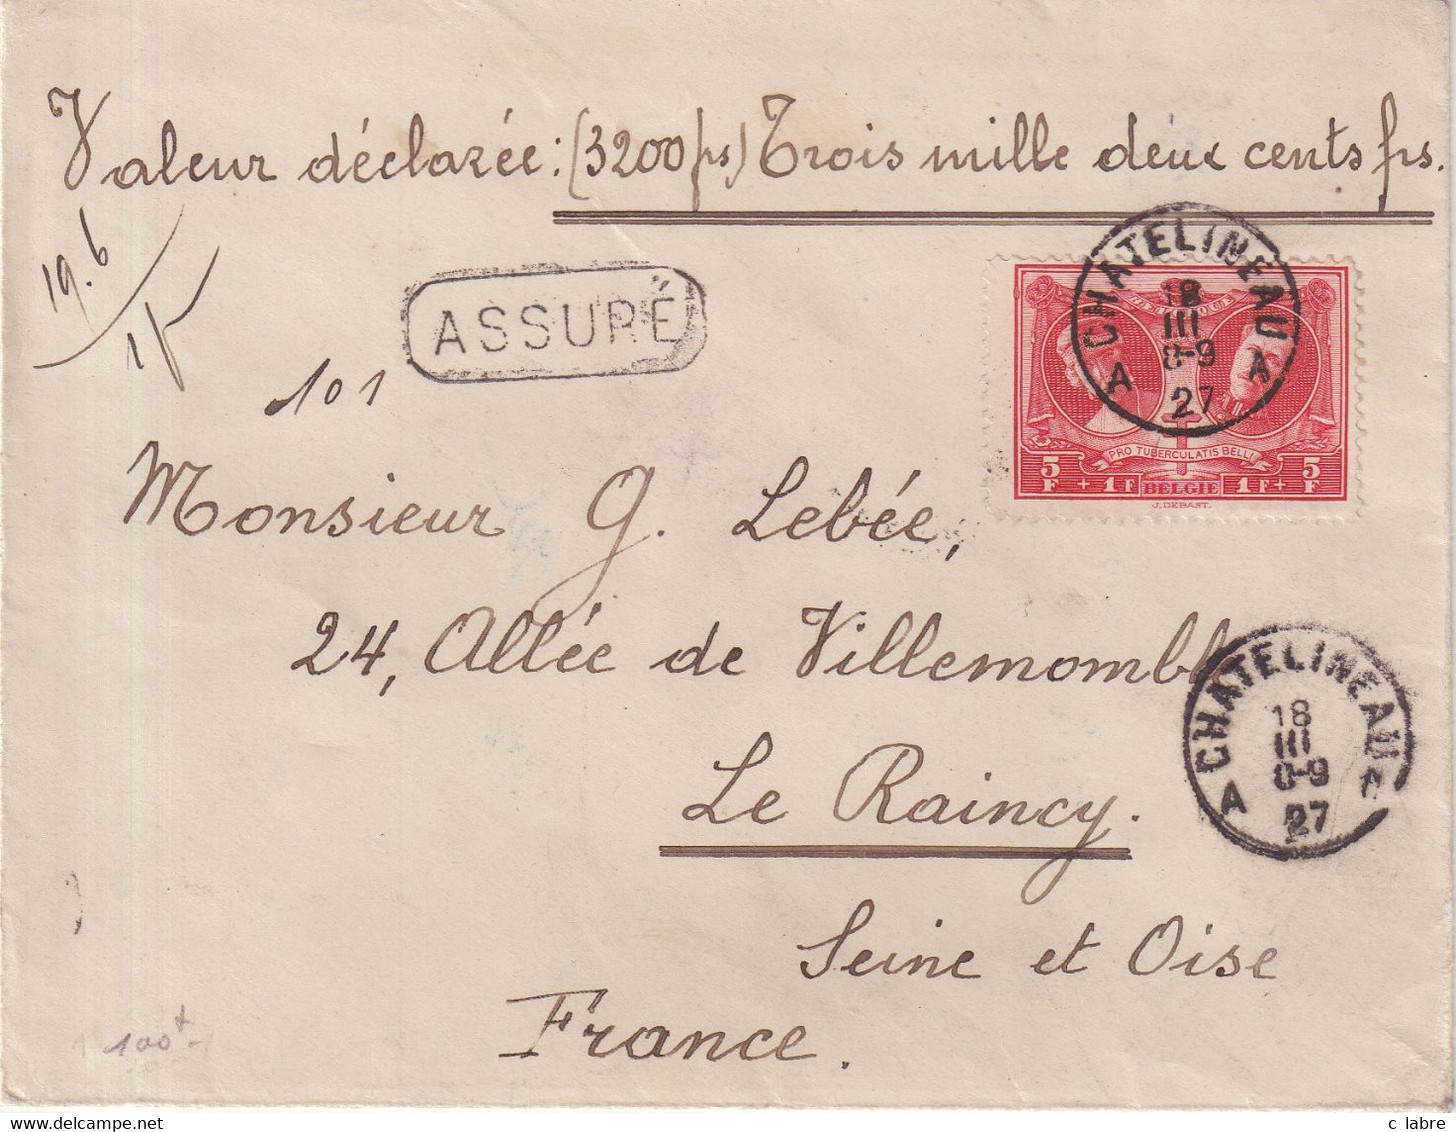 Valeur déclarée: (3200 frs) Trois mille deux cents frs.
19.6
101
ASSURÉ
CHATELINEAU
18
III
8-9
27
A A
PRO TUBERCULATIS BELLI
5 F + 1 F BELGIE 1 F + 5 F
J. DEBAST.
Monsieur G. Lebée,
24, Allée de Villemomble
CHATELINEAU
18
III
8-9
27
A A
Le Raincy.
Seine et Oise
France.
100+
c labre